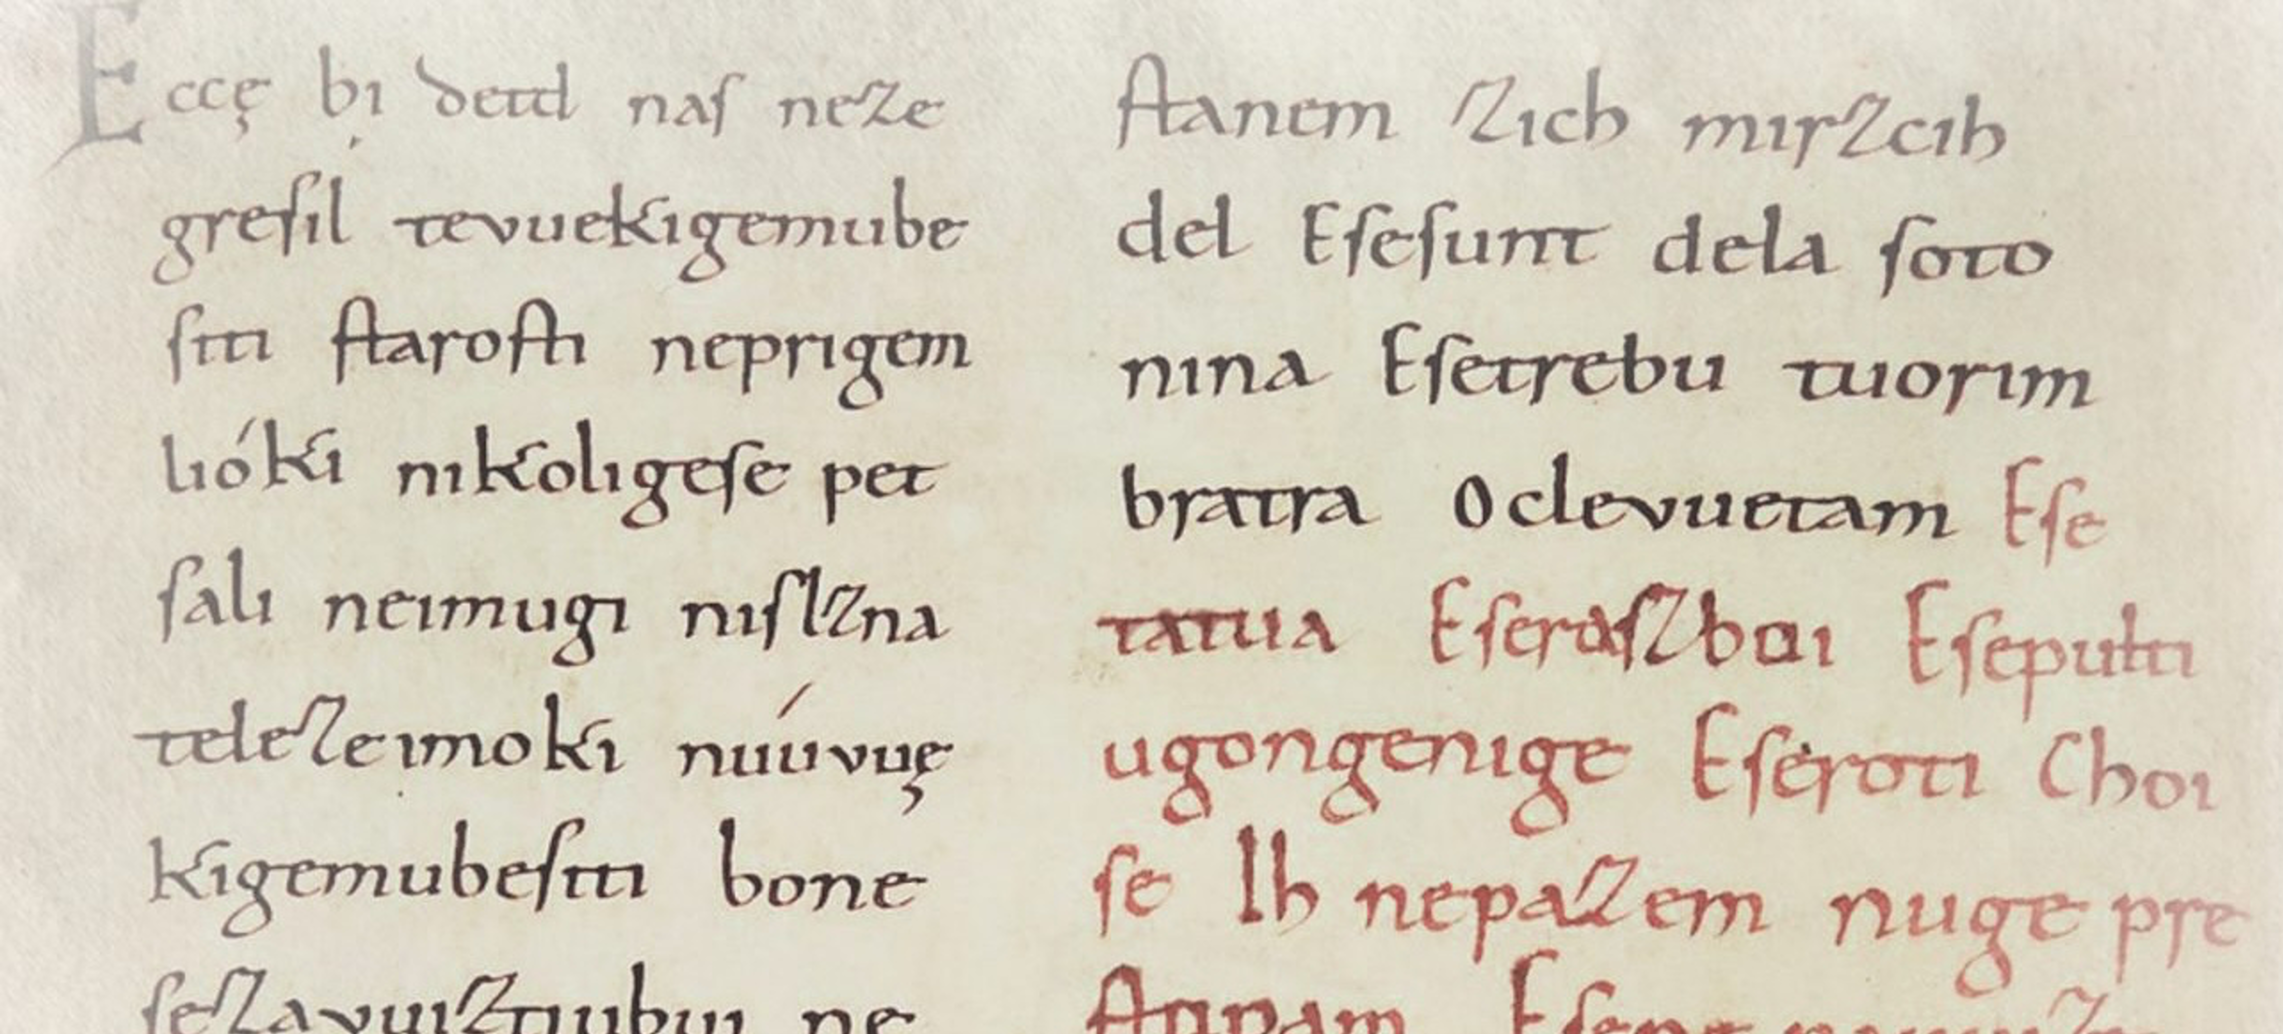 Eccę bi detd naſ neze
greſil tevuekigemube
ſiti ſtaroſti neprigem
lióki nikoligeſe pet
ſali neimugi niſlzna
telezeimoki nuúvuę
kigemubeſiti bone
ſezavuiztiubui ne
ſtanem zich mirzcih
del Eſeſunt dela ſoto
nina Eſetrebu tuorim
bratra Oclevuetam Eſe
tatua Eſeraſzboi Eſepulti
ugongenige Eſeroti Choi
ſe Ih nepazem nuge pre